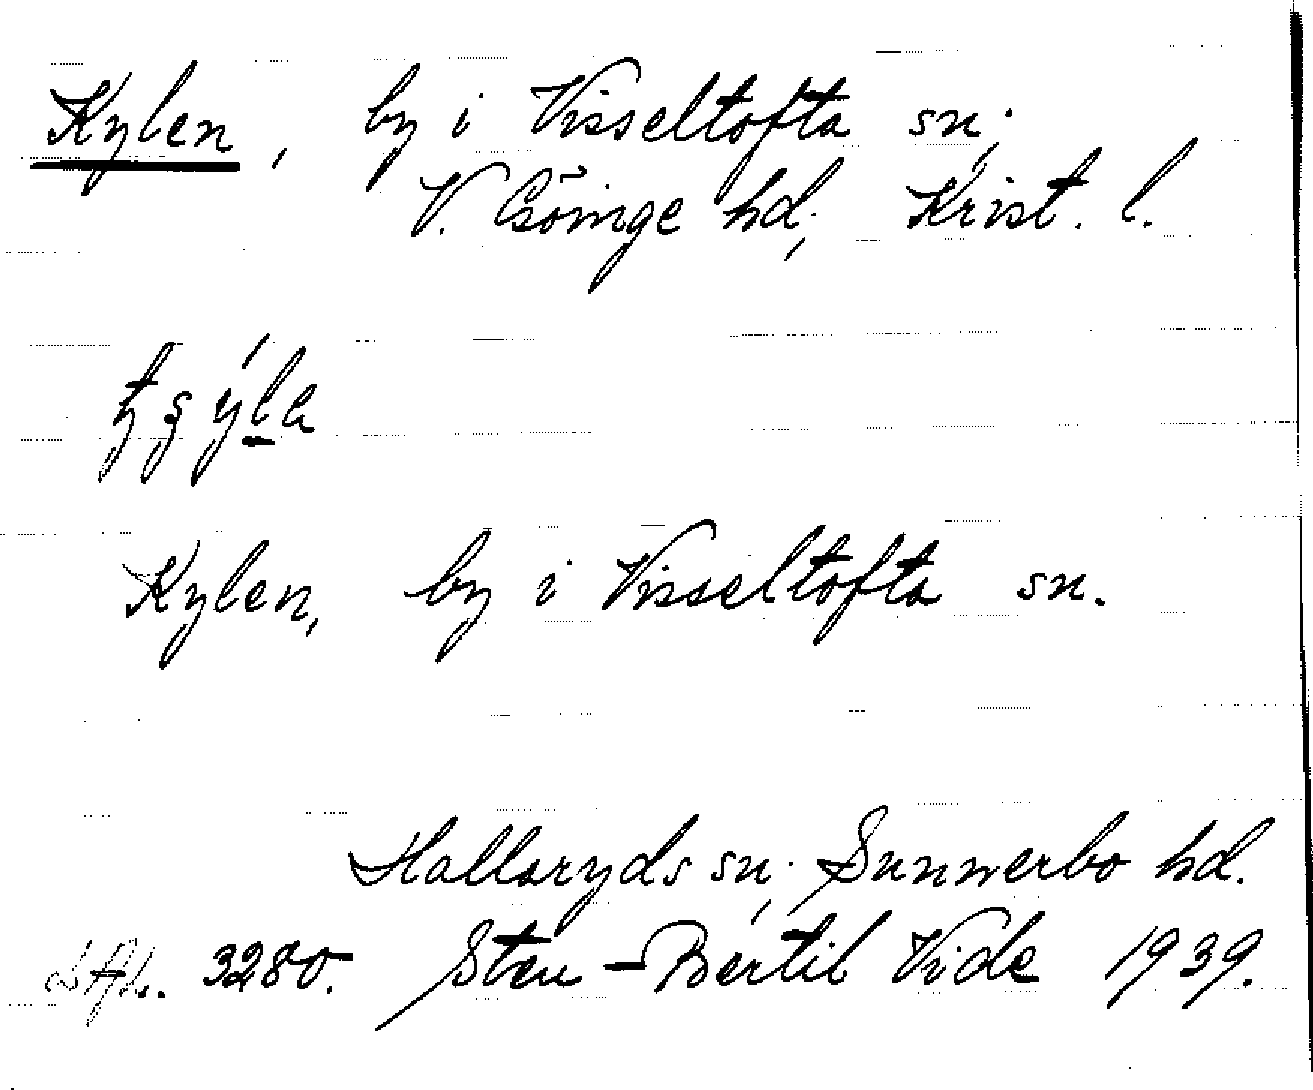 Kylen, by i Visseltofta sn,
V. Göinge hd, Krist. l.
Kylen, by i Visseltofta sn.
Hallaryds sn, Sunnerbo hd.
3280. Sten-Bertil Vide 1939.